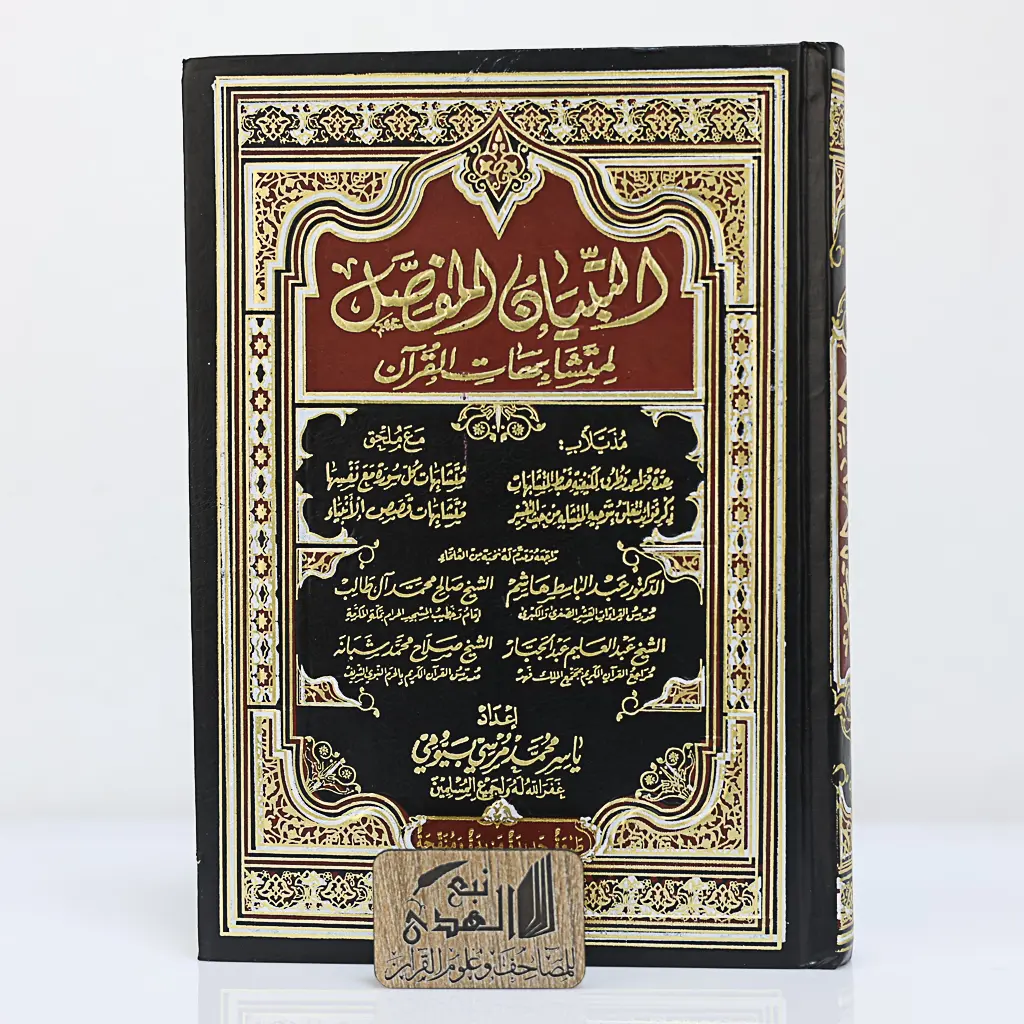 التبيان المفصل
لمتشابهات القرآن
مذيلاً ب:
عدة قواعد وطرق لكيفية ضبط المتشابهات
ذكر فوائد تتعلق بتوجيه المتشابه من حيث التفسير
مع ملحق
متشابهات كل سورة مع نفسها
متشابهات قصص الأنبياء
راجعه وقدم له نخبة من العلماء
الدكتور عبد الباسط هاشم
مدرس القراءات العشر الصغرى والكبرى
الشيخ صالح محمد آل طالب
إمام وخطيب المسجد الحرام بمكة المكرمة
الشيخ عبد العليم عبد الجبار
مراجع القرآن الكريم بمجمع الملك فهد
الشيخ صلاح محمد شبانه
مدرس القرآن الكريم بالحرم النبوي الشريف
إعداد
ياسر محمد مرسي بيومي
غفر الله له ولجميع المسلمين
طبعة جديدة مزيدة ومنقحة
نبع
الهدى
للمصاحف وعلوم القرآن